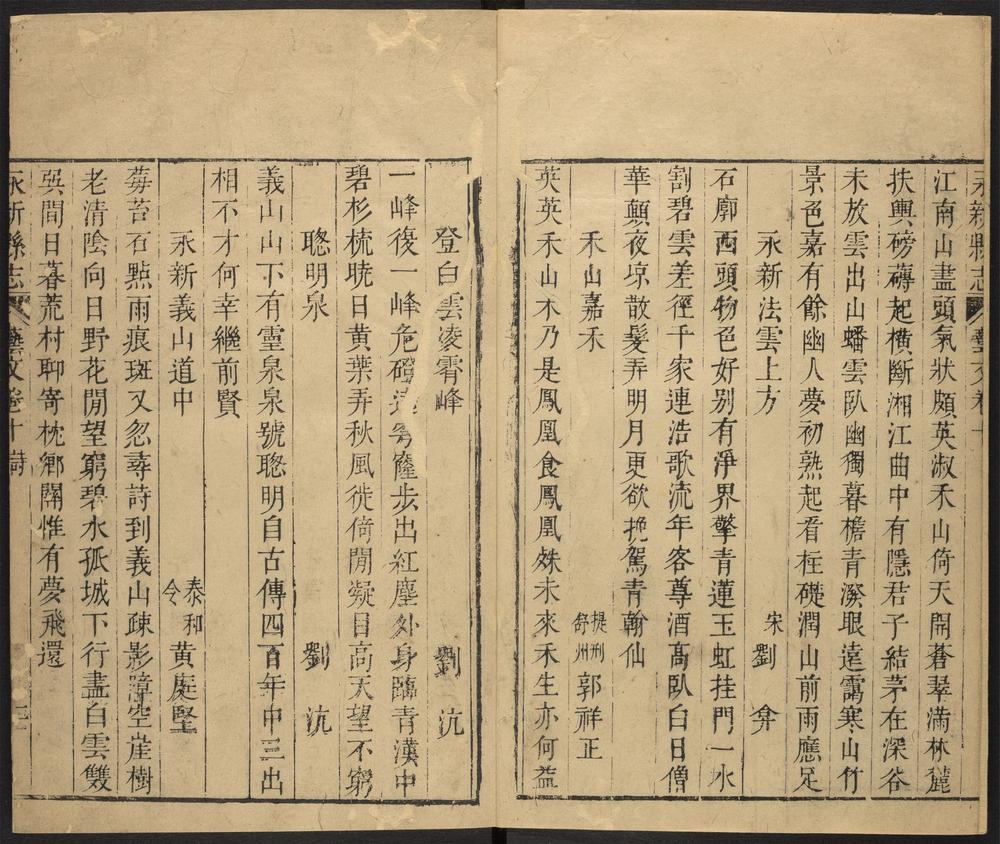 永新縣志 藝文卷十
江南山盡頭氣狀頗英淑禾山倚天開蒼翠滿林麓
扶輿磅礴起橫斷湘江曲中有隱君子結茅在深谷
未放雲出山蟠雲臥幽獨暮檐青潑眼遠靄寒山竹
景色嘉有餘幽人夢初熟起看柱礎潤山前雨應足
永新法雲上方 宋劉弇
石廓西頭物色好别有淨界擎青蓮玉虹挂門一水
割碧雲差徑千家連浩歌流年客尊酒髙臥白日僧
華顛夜凉散髮弄明月更欲挽駕青翰仙
禾山嘉禾 提刑舒州郭祥正
英英禾山木乃是鳳凰食鳳凰殊未來禾生亦何益
登白雲凌霄峰 劉沆
一峰復一峰危磴 步出紅塵外身臨青漢中
碧杉梳曉日黄葉弄秋風徙倚閒凝目高天望不窮
聰明泉 劉沆
義山山下有靈泉泉號聰明自古傳四百年中三出
相不才何幸繼前賢
永新義山道中 泰和令黄庭堅
莓苔石點雨痕斑又忽尋詩到義山疎影障空崖樹
老清陰向日野花閒望窮碧水孤城下行盡白雲雙
吳間日暮荒村聊寄枕鄉關惟有夢飛還
永新縣志 藝文卷十 詩